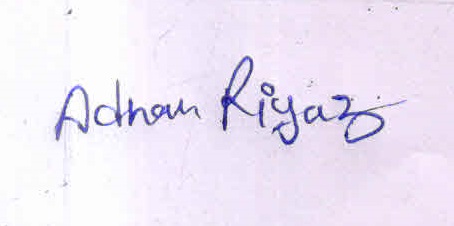 Adnan Riyaz